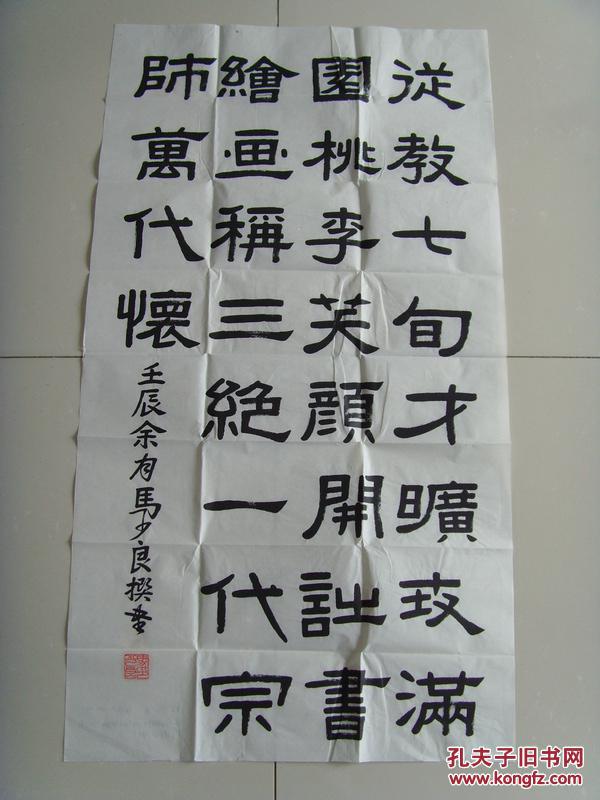 從教七旬才曠玫滿
園桃李芙顔開詘書
繪画稱三絶一代宗
師萬代懷
壬辰余有馬少良撰書
孔夫子旧书网
www.kongfz.com